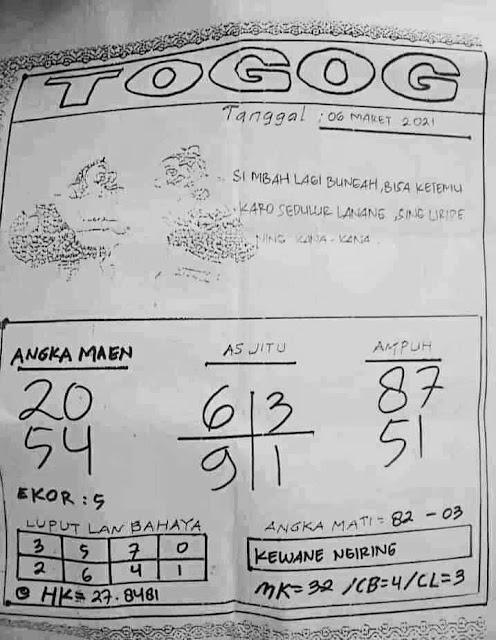 TOGOG
Tanggal : 06 MARET 2021
SI MBAH LAGI BUNGAH, BISA KETEMU
KARO SEDULUR LANANG, SING URIPE
NING KANA - KANA
ANGKA MAEN
20
54
EKOR : 5
AS JITU
6 3
9 1
AMPUH
87
51
LUPUT LAN BAHAYA
3 5 7 0
2 6 4 1
HK = 27.8481
ANGKA MATI = 82 - 03
KEWANE NGIRING
MK = 32 / CB = 4 / CL = 3